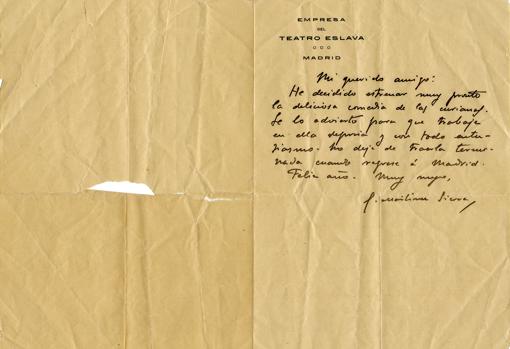 EMPRESA
DEL
TEATRO ESLAVA
MADRID
Mi querido amigo:
He decidido estrenar muy pronto
la deliciosa comedia de las curianas.
Se lo advierto para que trabaje
en ella deprisa y con todo entu-
siasmo. No deje de traerla termi-
nada cuando regrese á Madrid.
Feliz año. Muy suyo,
G. Martínez Sierra